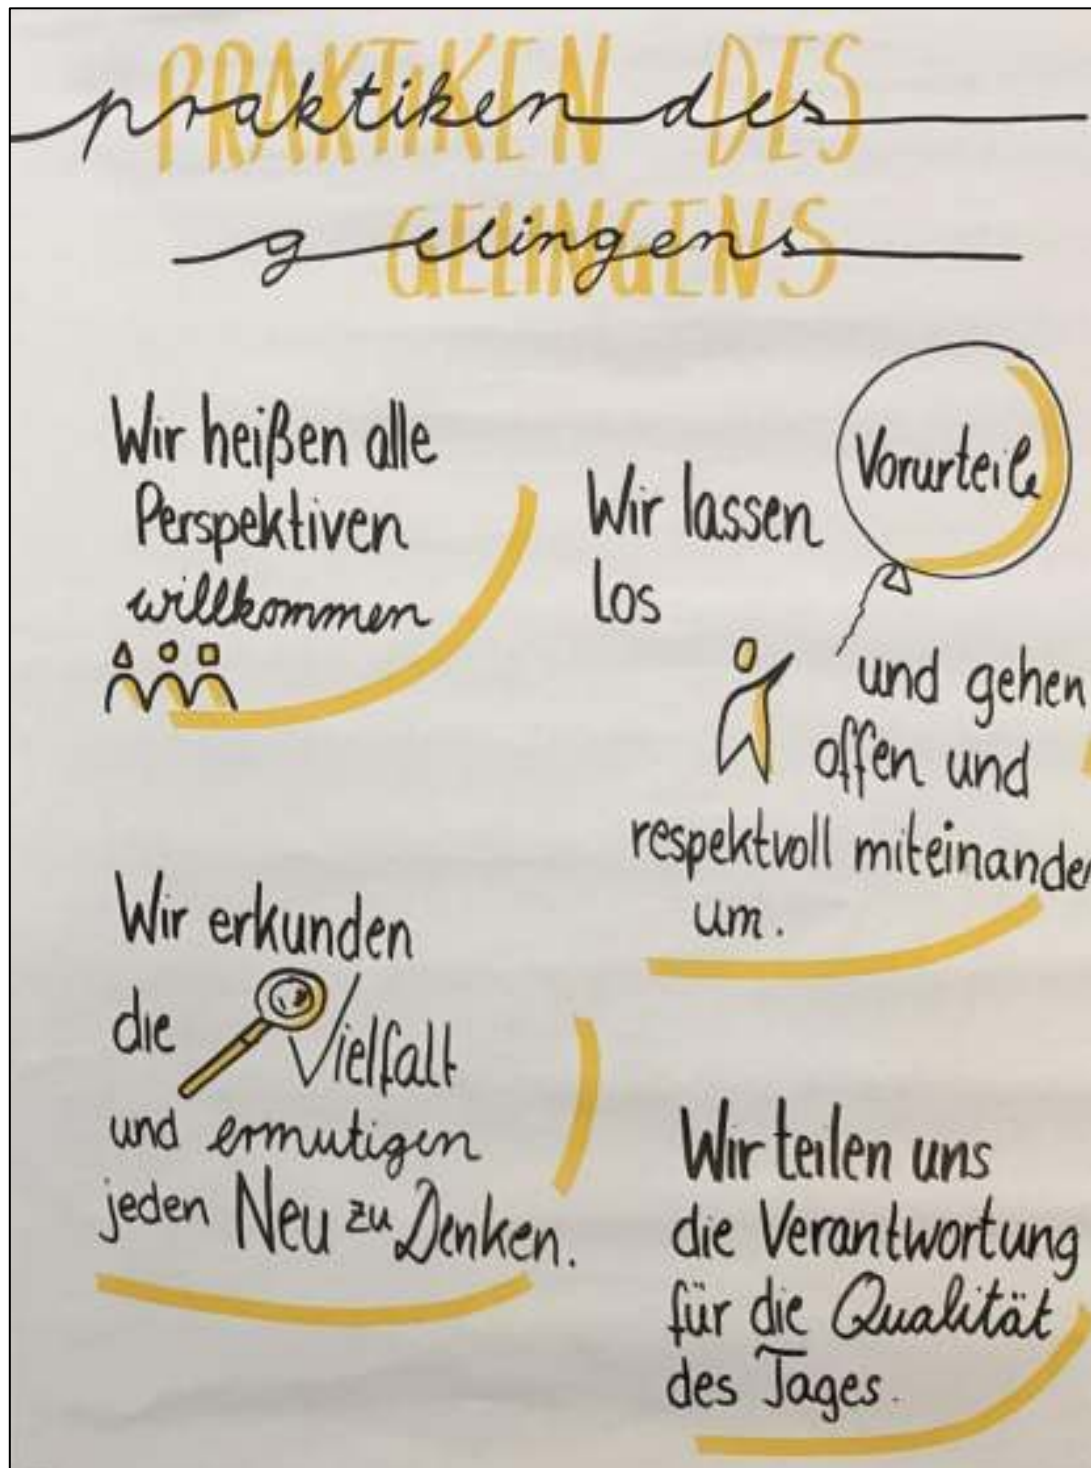 PRAKTIKEN DES
praktiken des
GELINGENS
gelingens
Wir heißen alle
Perspektiven
willkommen
Wir lassen
los
Vorurteile
und gehen
offen und
respektvoll miteinander
um.
Wir erkunden
die Vielfalt
und ermutigen
jeden Neu zu Denken.
Wir teilen uns
die Verantwortung
für die Qualität
des Tages.